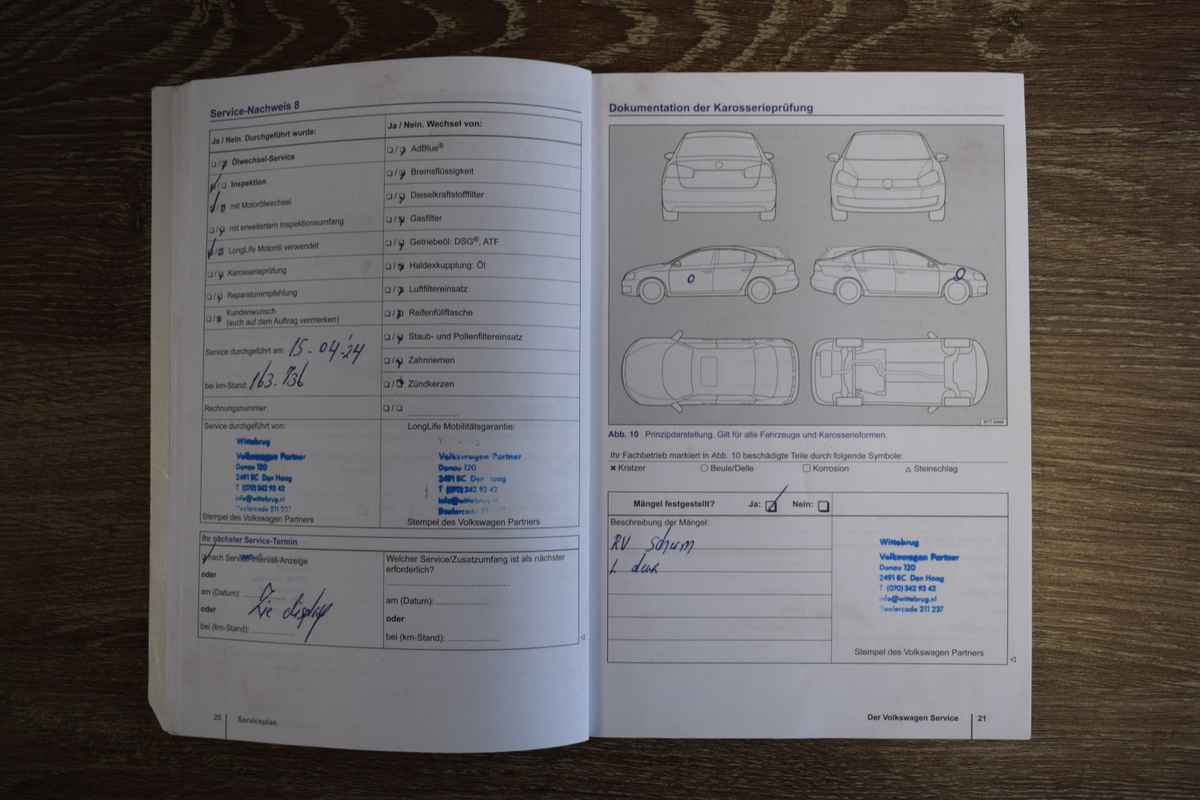 Service-Nachweis 8
Ja / Nein. Durchgeführt wurde:
Ölwechsel-Service
Inspektion
mit Motorölwechsel
mit erweitertem Inspektionsumfang
LongLife Motoröl verwendet
Karosserieprüfung
Reparaturempfehlung
Kundenwunsch
(auch auf dem Auftrag vermerken)
Service durchgeführt am: 15-04-24
bei km-Stand: 163.936
Rechnungsnummer:
Service durchgeführt von:
Wittebrug
Volkswagen Partner
Donau 120
2491 BC Den Haag
T (070) 342 93 42
info@wittebrug.nl
Dealercode 211 237
Stempel des Volkswagen Partners
Ja / Nein. Wechsel von:
AdBlue®
Bremsflüssigkeit
Dieselkraftstofffilter
Gasfilter
Getriebeöl: DSG®, ATF
Haldexkupplung: Öl
Luftfiltereinsatz
Reifenfüllflasche
Staub- und Pollenfiltereinsatz
Zahnriemen
Zündkerzen
LongLife Mobilitätsgarantie:
Volkswagen Partner
Donau 120
2491 BC Den Haag
T (070) 342 93 42
info@wittebrug.nl
Dealercode 211 237
Stempel des Volkswagen Partners
Ihr nächster Service-Termin
nach Service-Intervall-Anzeige
oder
am (Datum):
Zie display
oder
bei (km-Stand):
Welcher Service/Zusatzumfang ist als nächster
erforderlich?
am (Datum):
oder
bei (km-Stand):
20 Serviceplan
Dokumentation der Karosserieprüfung
Abb. 10 Prinzipdarstellung. Gilt für alle Fahrzeuge und Karosserieformen.
Ihr Fachbetrieb markiert in Abb. 10 beschädigte Teile durch folgende Symbole:
Kratzer Beule/Delle Korrosion Steinschlag
Mängel festgestellt? Ja: Nein:
Beschreibung der Mängel:
RV scherm
L deur
Wittebrug
Volkswagen Partner
Donau 120
2491 BC Den Haag
T (070) 342 93 42
info@wittebrug.nl
Dealercode 211 237
Stempel des Volkswagen Partners
Der Volkswagen Service 21